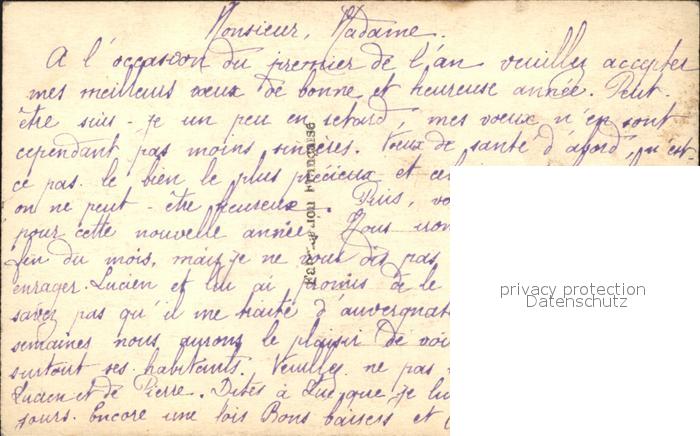 Monsieur, Madame.
A l'occasion du premier de l'an veuillez accepter
mes meilleurs vœux de bonne et heureuse année. Peut-
être suis-je un peu en retard, mes vœux n'en sont
cependant pas moins sincères. Vœux de santé d'abord, n'est-
ce pas le bien le plus précieux et
on ne peut-être heureux. Puis,
pour cette nouvelle année. Nous
fin du mois, mais je ne vous dis pas
enrager. Lucien et lui ai promis de le
savez pas qu'il me traite d'auvergnat
semaines nous aurons le plaisir de
surtout ses habitants. Veuillez ne pas
Lucien et de Pierre. Dites à que je
jours. Encore une fois Bons baisers et
privacy protection
Datenschutz